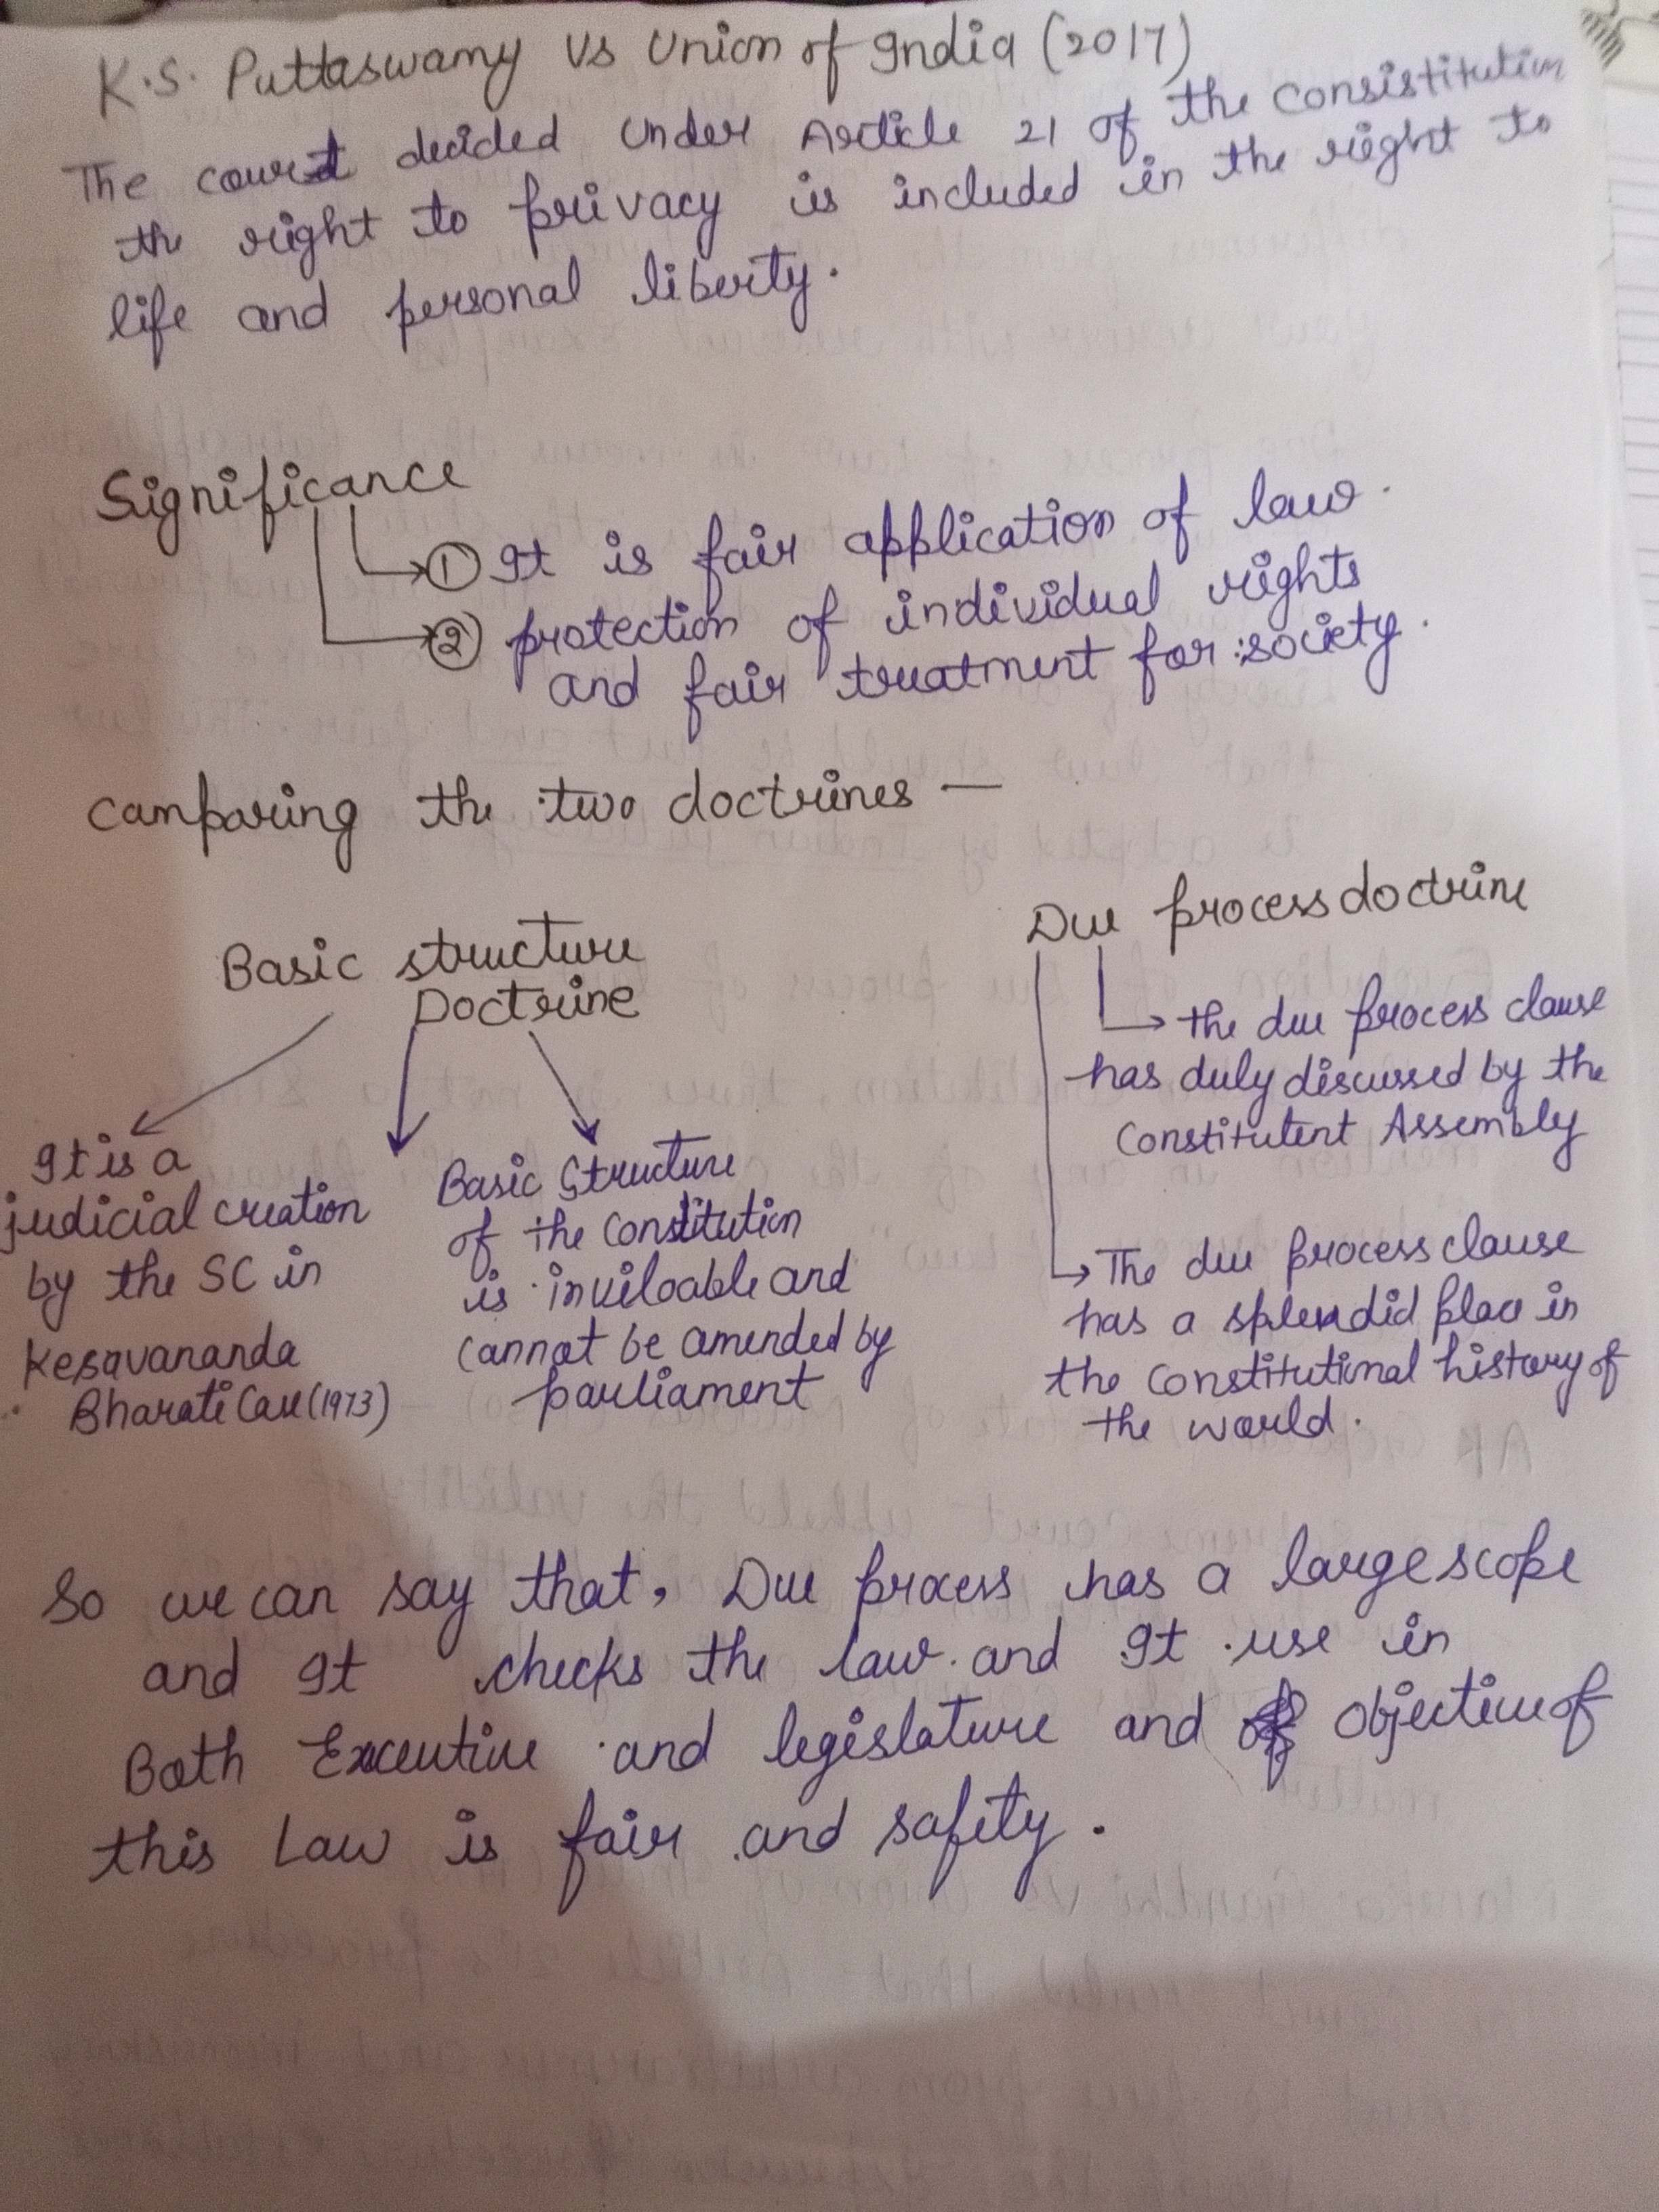 K.S. Puttaswamy vs Union of India (2017)
The court decided under Article 21 of the consistitution
the right to privacy is included in the right to
life and personal liberty.
Significance
① It is fair application of law.
② protection of individual rights
and fair treatment for society.
camparing the two doctrines —
Basic structure
Doctrine
It is a
judicial creation
by the SC in
Kesavananda
Bharati Case (1973)
Basic Structure
of the constitution
is inviloable and
cannot be amended by
parliament
Due process doctrine
the due process clause
has duly discussed by the
Constitutent Assembly
The due process clause
has a splendid place in
the constitutional history of
the world.
So we can say that, Due process has a large scope
and It checks the law and It use in
Both Executive and legislature and objective of
this Law is fair and safety.